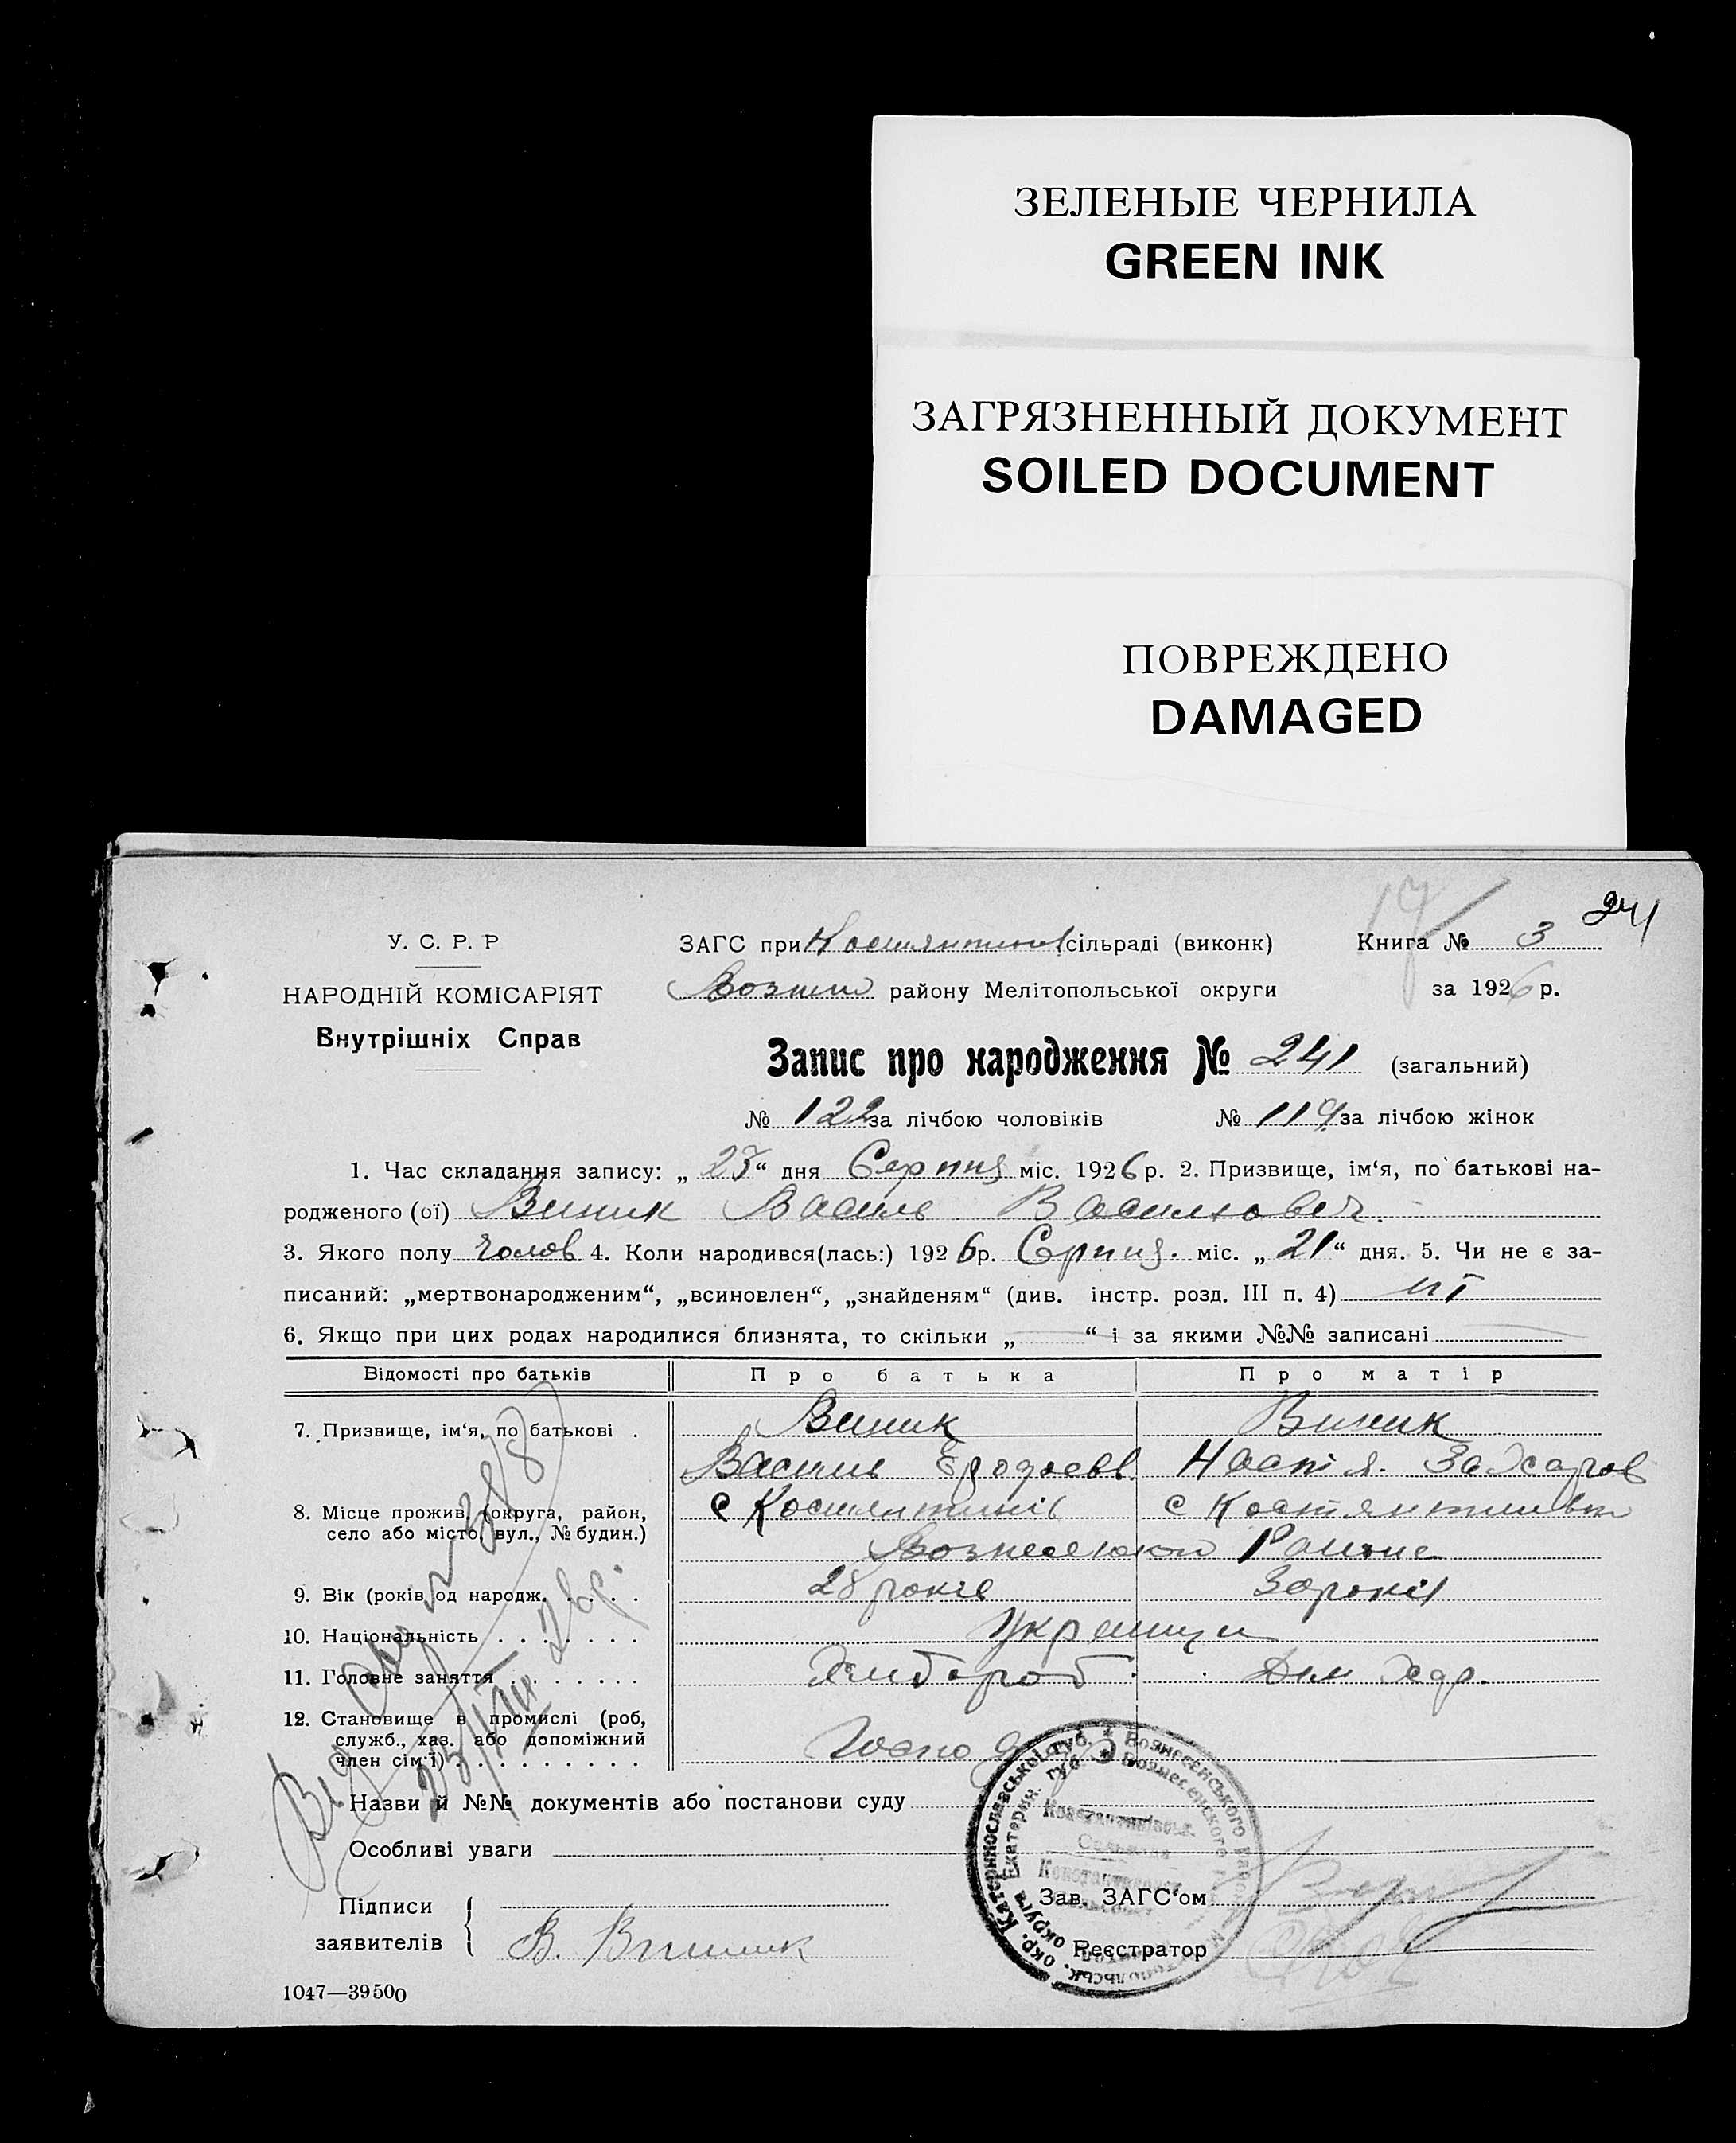 ЗЕЛЕНЫЕ ЧЕРНИЛА
GREEN INK
ЗАГРЯЗНЕННЫЙ ДОКУМЕНТ
SOILED DOCUMENT
ПОВРЕЖДЕНО
DAMAGED
17 241
У. С. Р. Р ЗАГС при сільраді (виконк) Книга № 3
НАРОДНІЙ КОМІСАРІЯТ району Мелітопольської округи за 1926 р.
Внутрішніх Справ
Запис про народження № 241 (загальний)
№ 122 за лічбою чоловіків № 119 за лічбою жінок
1. Час складання запису: „ 23 “ дня Серпня міс. 1926 р. 2. Призвище, ім‘я, по батькові на-
родженого (ої) Виник Василь Васильович.
3. Якого полу чолов 4. Коли народився(лась:) 1926 р. Серпня. міс. „ 21 “ дня. 5. Чи не є за-
писаний: „мертвонародженим“, „всиновлен“, „знайденям“ (див. інстр. розд. III п. 4) ні
6. Якщо при цих родах народилися близнята, то скільки „ “ і за якими №№ записані
Відомості про батьків Про батька Про матір
7. Призвище, ім‘я, по батькові . Виник Виник
Василь Настя. Захаров
8. Місце прожив. (округа, район, с Костянтинів с Костянтинівки
село або місто, вул., № будин.)
9. Вік (років од народж. . . . . 28 років 30 років
10. Національність . . . . . . . Українці
11. Головне заняття . . . . . . . Хлібороб Дом Хазр.
12. Становище в промислі (роб,
служб., хаз. або допоміжний
член сім‘ї) . . . . . . . . . . Господ
Назви й №№ документів або постанови суду
Особливі уваги
Підписи
заявителів В. Виник
Зав. ЗАГС‘ом
Реєстратор
1047—39500
23/VIII 26 р.